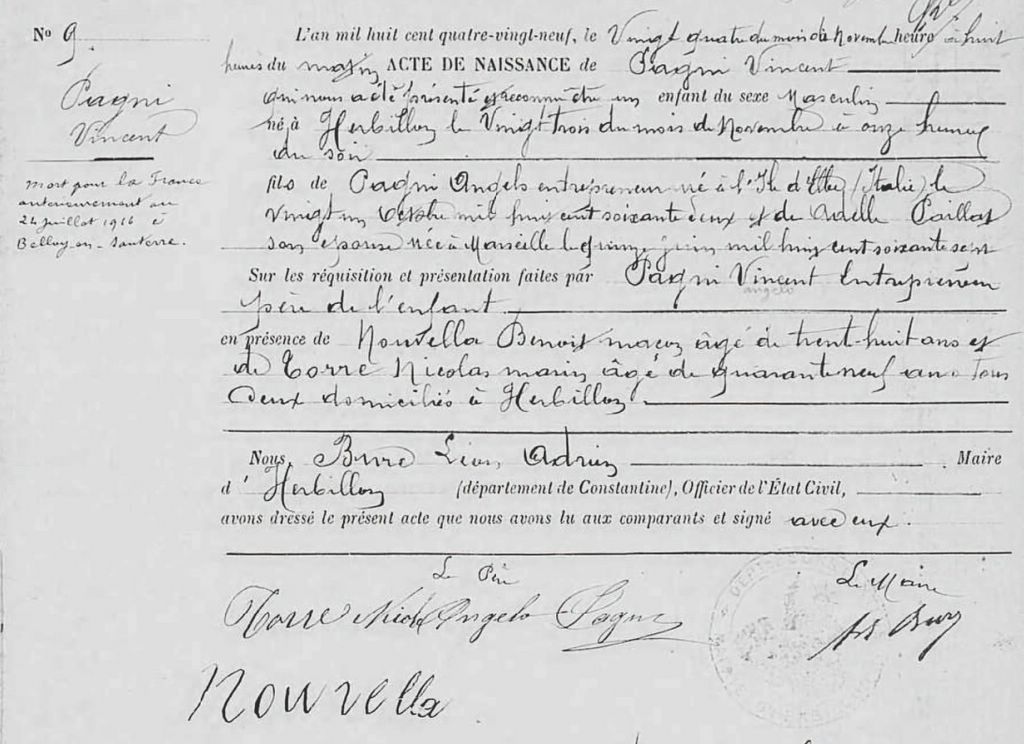 No 9.
L'an mil huit cent quatre-vingt-neuf, le Vingt quatre du mois de Novembre heure à huit
heures du matin ACTE DE NAISSANCE de Pagni Vincent
qui nous a été présenté et reconnu être un enfant du sexe Masculin
né à Herbillon le Vingt trois du mois de Novembre à onze heures
du soir
fils de Pagni Angelo entrepreneur né à l'Ile d'Elbe (Italie) le
vingt un Octobre mil huit cent soixante deux et de Paillas
son épouse née à Marseille le quinze juin mil huit cent soixante sept
Sur les réquisition et présentation faites par Pagni Vincent Entrepreneur
angelo
père de l'enfant
en présence de Nouvella Benoit maçon âgé de trent-huit ans et
de Torre Nicolas marin âgé de quarante neuf ans Tous
Deux domiciliés à Herbillon
Nous, Burre Léon Adrien Maire
d'Herbillon (département de Constantine), Officier de l'État Civil,
avons dressé le présent acte que nous avons lu aux comparants et signé avec eux.
Pagni
Vincent
Mort pour la France
antérieurement au
24 juillet 1916 à
Belloy-en-Santerre.
Le Père
Le Maire
Torre Nicol Angelo Pagni
Nouvella